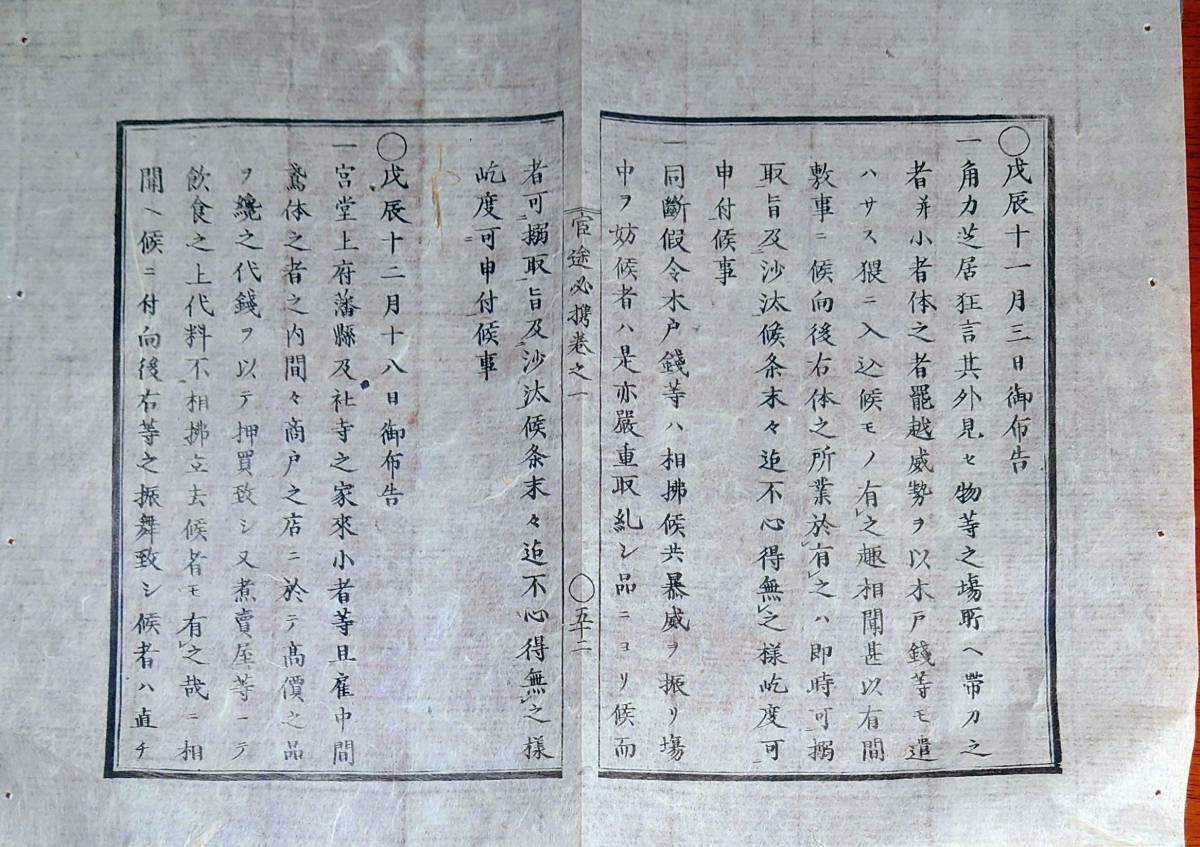 〇戊辰十一月三日御布告
一角力芝居狂言其外見セ物等之場所ヘ帶刀之
者并小者体之者罷越威勢ヲ以木戸錢等モ遣
ハサス猥ニ入込候モノ有之趣相聞甚以有間
敷事ニ候向後右体之所業於有之ハ即時可搦
取旨及沙汰候条末々迠不心得無之樣屹度可
申付候事
一同斷假令木戸錢等ハ相拂候共暴威ヲ振リ塲
中ヲ妨候者ハ是亦嚴重取糺シ品ニヨリ候而
官途必携巻之一
〇五十二
者可搦取旨及沙汰候条末々迠不心得無之樣
屹度可申付候事
〇戊辰十二月十八日御布告
一宮堂上府藩縣及社寺之家來小者等且雇中間
鳶体之者之内間々商戸之店ニ於テ髙價之品
ヲ纔之代錢ヲ以テ押買致シ又煮賣屋等ニテ
飲食之上代料不相拂立去候者モ有之哉ニ相
聞ヘ候ニ付向後右等之振舞致シ候者ハ直チ